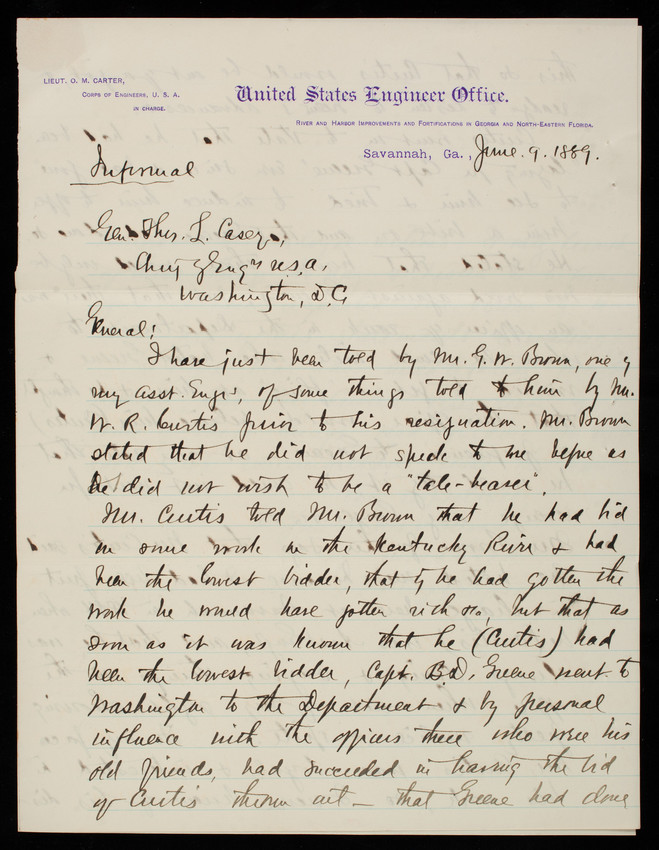 LIEUT. O. M. CARTER,
CORPS OF ENGINEERS, U. S. A.
IN CHARGE.
United States Engineer Office.
RIVER AND HARBOR IMPROVEMENTS AND FORTIFICATIONS IN GEORGIA AND NORTH-EASTERN FLORIDA.
Savannah, Ga., June. 9. 1889.
Informal
Gen. Thos. L. Casey,
Chief of Engrs U.S.A.
Washington, D.C.
General:
I have just been told by Mr. G. W. Brown, one of
my asst. Engrs, of some things told to him by Mr.
W. R. Curtis prior to his resignation. Mr. Brown
stated that he did not speak to me before as
he did not wish to be a "tale-bearer".
Mr. Curtis told Mr. Brown that he had bid
on some work on the Kentucky River & had
been the lowest bidder, that if he had gotten the
work he would have gotten rich on, but that as
soon as it was known that he (Curtis) had
been the lowest bidder, Capt. B.D. Greene went to
Washington to the Department & by personal
influence with the officers there who were his
old friends, had succeeded in having the bid
of Curtis thrown out — that Greene had done